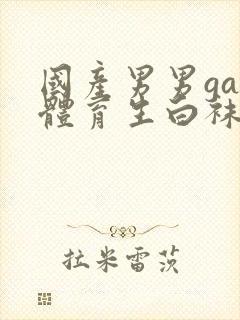 國產男男ga
體育生白袜
拉米雷茨